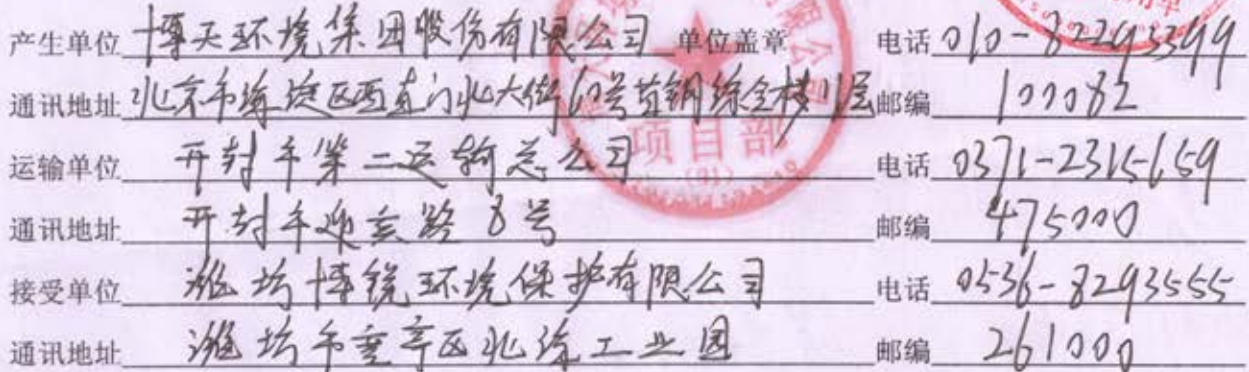 产生单位 博天环境集团股份有限公司 单位盖章 电话 010-82293399
通讯地址 北京市海淀区西直门北大街60号首钢综合楼11层 邮编 100082
运输单位 开封市第二运输总公司 电话 0371-2315659
通讯地址 开封市迎宾路8号 邮编 475000
接受单位 潍坊博锐环境保护有限公司 电话 0536-8293555
通讯地址 潍坊市奎文区北海工业园 邮编 261000
有限公司
项目部
(01)